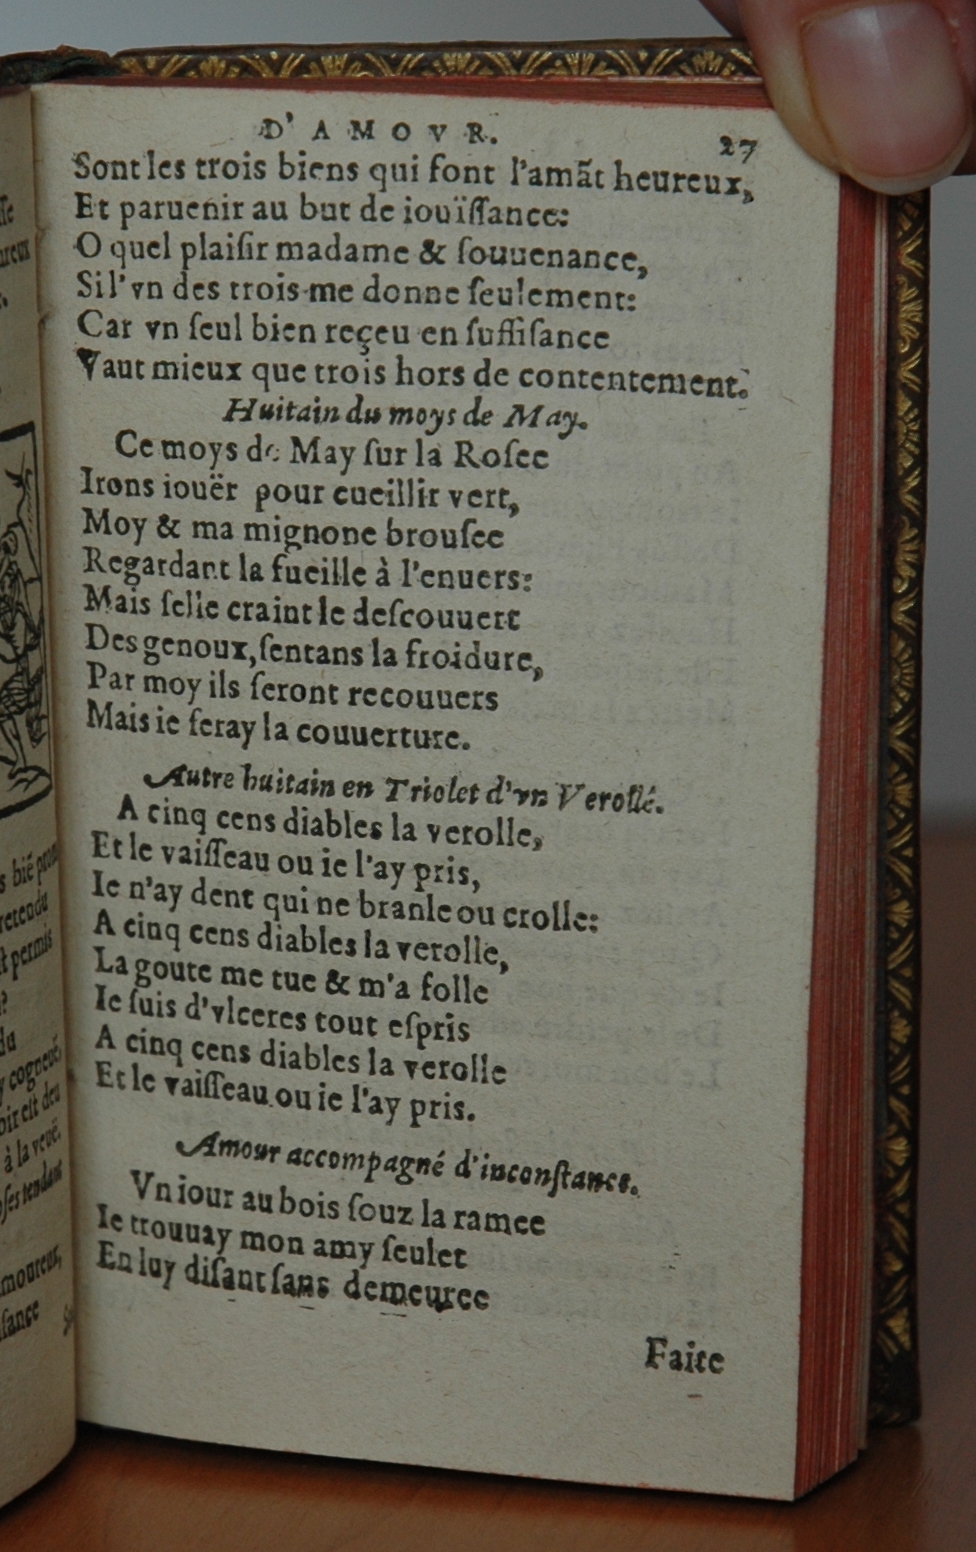 D'AMOVR. 27
Sont les trois biens qui font l'amãt heureux,
Et paruenir au but de iouïſſance:
O quel plaiſir madame & ſouuenance,
Si l'vn des trois me donne ſeulement:
Car vn ſeul bien reçeu en ſuffiſance
Vaut mieux que trois hors de contentement.
Huitain du moys de May.
Ce moys de May ſur la Roſee
Irons iouër pour cueillir vert,
Moy & ma mignone brouſee
Regardant la fueille à l'enuers:
Mais ſelle craint le deſcouuert
Des genoux, ſentans la froidure,
Par moy ils ſeront recouuers
Mais ie feray la couuerture.
Autre huitain en Triolet d'vn Verollé.
A cinq cens diables la verolle,
Et le vaiſſeau ou ie l'ay pris,
Ie n'ay dent qui ne branle ou crolle:
A cinq cens diables la verolle,
La goute me tue & m'a folle
Ie ſuis d'vlceres tout eſpris
A cinq cens diables la verolle
Et le vaiſſeau ou ie l'ay pris.
Amour accompagné d'inconſtance.
Vn iour au bois ſouz la ramee
Ie trouuay mon amy ſeulet
En luy diſant ſans demeuree
Faite
s bié
retendu
permis
du
cogneuë,
à la veuë.
tendant